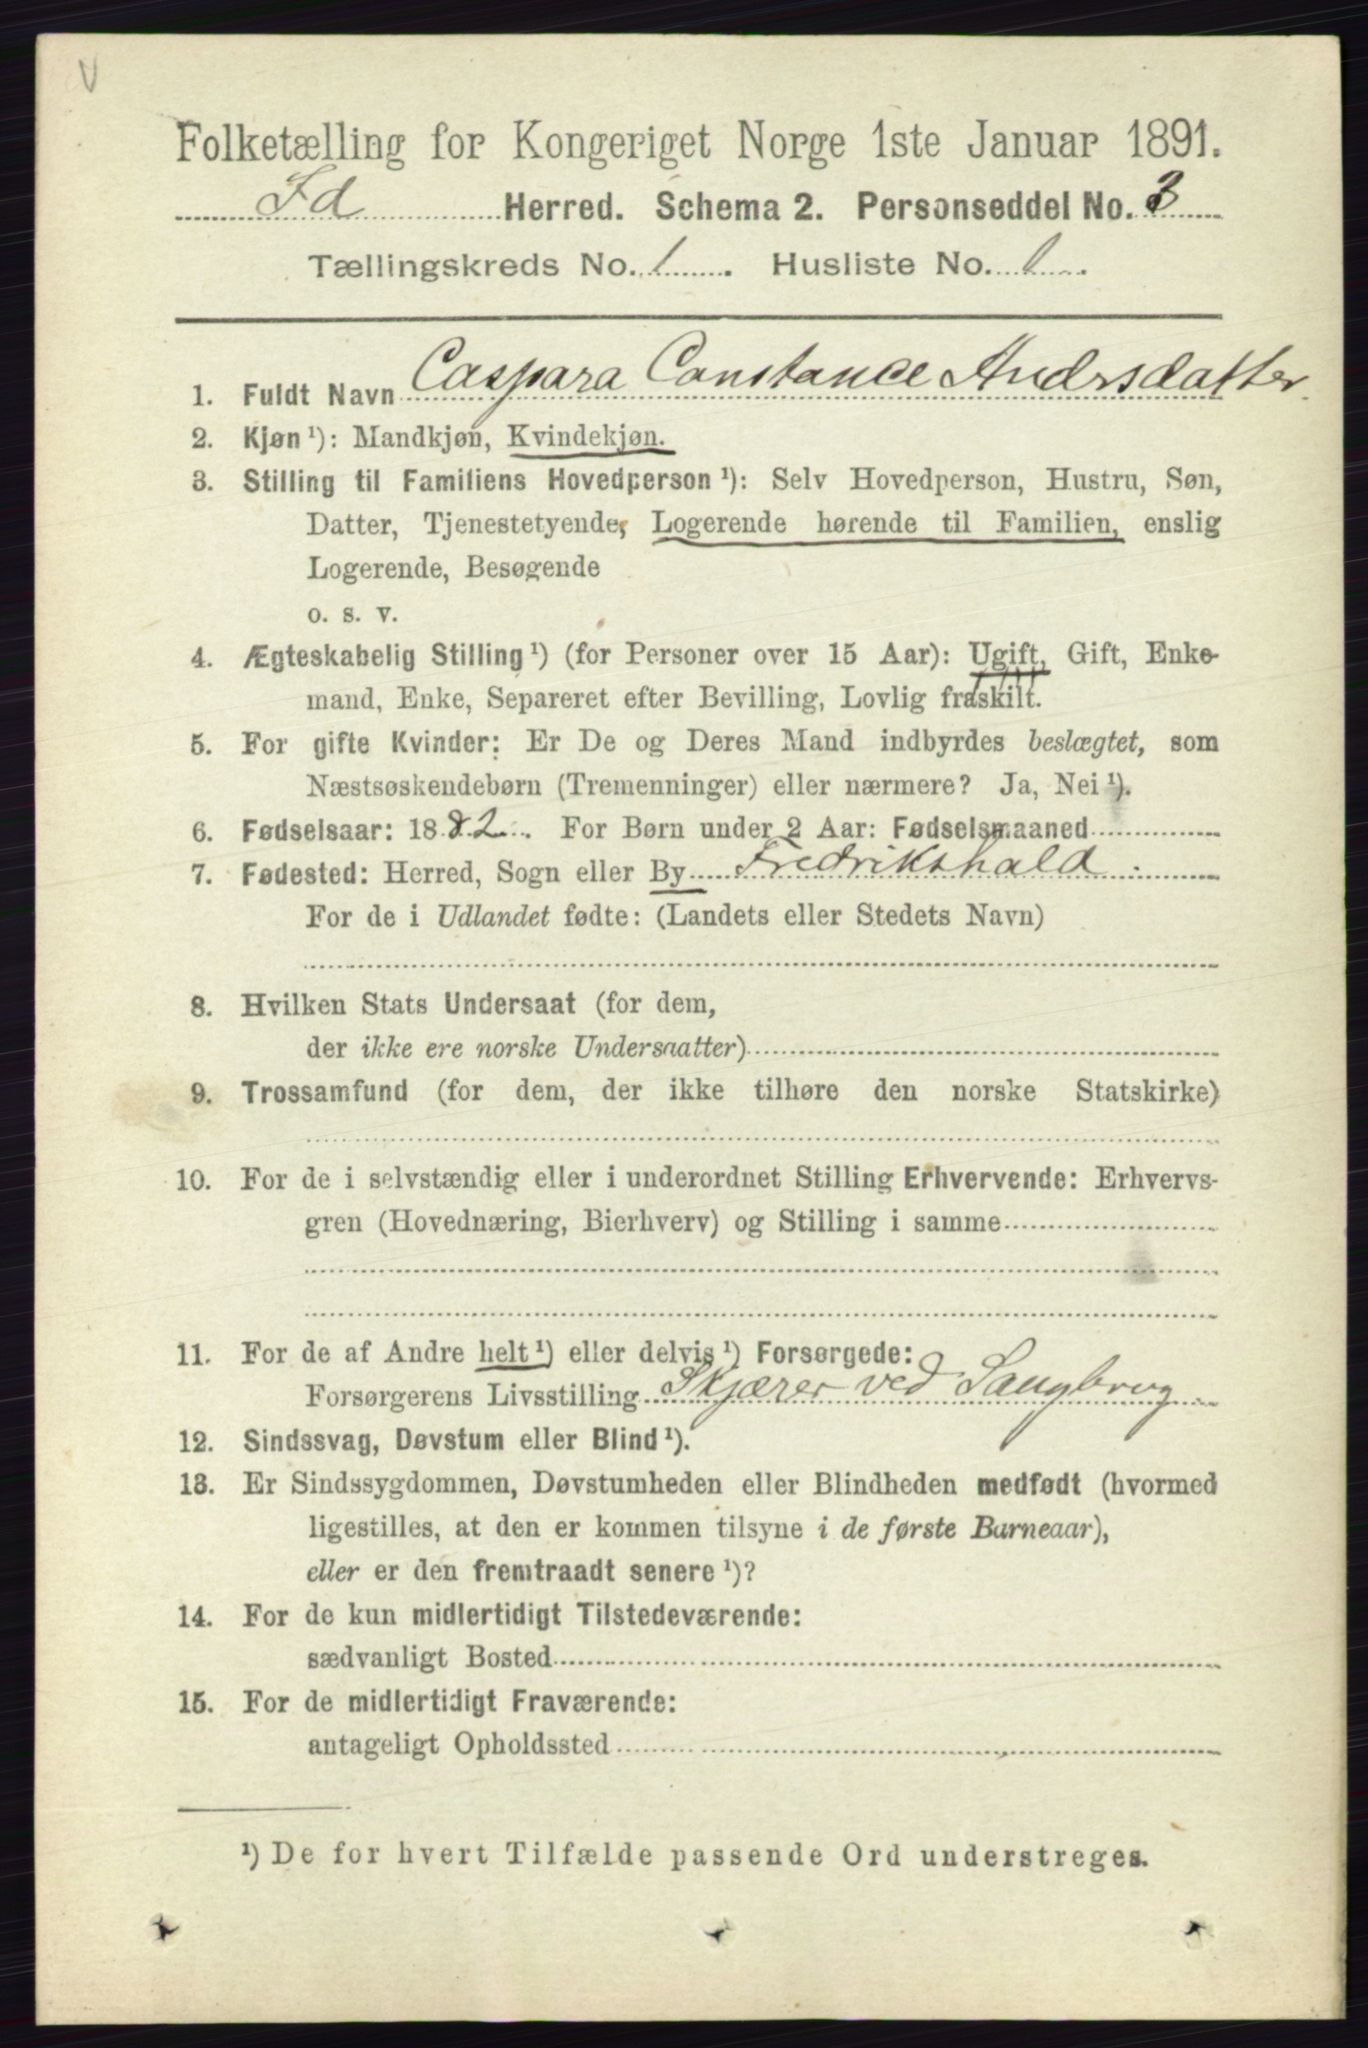 V
Folketælling for Kongeriget Norge 1ste Januar 1891.
Id Herred. Schema 2. Personseddel No. 3
Tællingskreds No. 1. Husliste No. 1.
1. Fuldt Navn Caspara Constance Andrsdatter
2. Kjøn ¹): Mandkjøn, Kvindekjøn.
3. Stilling til Familiens Hovedperson ¹): Selv Hovedperson, Hustru, Søn,
Datter, Tjenestetyende, Logerende hørende til Familien, enslig
Logerende, Besøgende
o. s. v.
4. Ægteskabelig Stilling ¹) (for Personer over 15 Aar): Ugift, Gift, Enke-
mand, Enke, Separeret efter Bevilling, Lovlig fraskilt.
5. For gifte Kvinder: Er De og Deres Mand indbyrdes beslægtet, som
Næstsøskendebørn (Tremenninger) eller nærmere? Ja, Nei ¹).
6. Fødselsaar: 1882. For Børn under 2 Aar: Fødselsmaaned
7. Fødested: Herred, Sogn eller By Fredrikshald.
For de i Udlandet fødte: (Landets eller Stedets Navn)
8. Hvilken Stats Undersaat (for dem,
der ikke ere norske Undersaatter)
9. Trossamfund (for dem, der ikke tilhøre den norske Statskirke)
10. For de i selvstændig eller i underordnet Stilling Erhvervende: Erhvervs-
gren (Hovednæring, Bierhverv) og Stilling i samme
11. For de af Andre helt ¹) eller delvis ¹) Forsørgede:
Forsørgerens Livsstilling Skjærer ved Saugbrug
12. Sindssvag, Døvstum eller Blind ¹).
13. Er Sindssygdommen, Døvstumheden eller Blindheden medfødt (hvormed
ligestilles, at den er kommen tilsyne i de første Barneaar),
eller er den fremtraadt senere ¹)?
14. For de kun midlertidigt Tilstedeværende:
sædvanligt Bosted
15. For de midlertidigt Fraværende:
antageligt Opholdssted
¹) De for hvert Tilfælde passende Ord understreges.